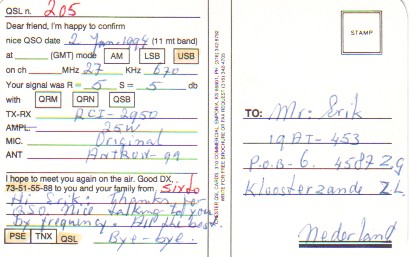 QSL n. 205
Dear friend, I'm happy to confirm
nice QSO date 2 Jan. 1994 (11 mt band)
at (GMT) mode AM LSB USB
on ch MHz 27 KHz 670
Your signal was R = 5 S = 5 db
with QRM QRN QSB
TX-RX RCI-2950
AMPL. 25W
MIC. Original
ANT Antron-99
I hope to meet you again on the air. Good DX.
73-51-55-88 to you and your family from Sixto
Hi Erik: Thanks for
QSO. Nice talking to you
by frequency. All the best.
PSE TNX QSL Bye-bye.
STAMP
TO: Mr: Erik
19AT-453
P.O.B-6. 4587 Z.G
Kloosterzande Z.L.
Nederland